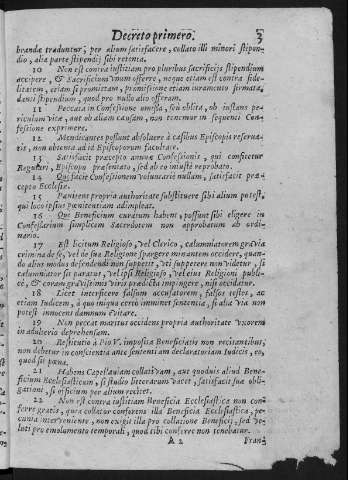 Decreto primero. 3
brandæ traduntur, per alium satisfacere, collato illi minori stipen-
dio, alia parte stipendij sibi retenta.
10 Non est contra iustitiam pro pluribus sacrificijs stipendium
accipere, & Sacrificium unum offerre, neque etiam est contra fide-
litatem, etiam si promittam, promissione etiam iuramento firmata,
danti stipendium, quod pro nullo alio offeram.
11 Peccata in Confessione omissa, seu oblita, ob instans pe-
riculum vitæ, aut ob aliam causam, non tenemur in sequenti Con-
fessione exprimere.
12 Mendicantes possunt absoluere à casibus Episcopis reserua-
tis, non obtenta ad id Episcoporum facultate.
13 Satisfacit præcepto annuæ Confessionis, qui confitetur
Regulari, Episcopo præsentato, sed ab eo iniuste reprobato.
14 Qui facit Confessionem voluntariè nullam, satisfacit præ-
cepto Ecclesiæ.
15 Pœnitens propria authoritate substituere sibi alium potest,
qui loco ipsius pœnitentiam adimpleat.
16 Qui Beneficium curatum habent, possunt sibi eligere in
Confessarium simplicem Sacerdotem non approbatum ab ordi-
nario.
17 Est licitum Religioso, vel Clerico, calumniatorem grauia
crimina de se, vel de sua Religione spargere minantem occidere, quan-
do alius modus defendendi non suppetit, uti suppetere non videtur, si
calumniator sit paratus, vel ipsi Religioso, vel eius Religioni publi-
cè, & coram grauissimis viris prædicta impingere, nisi occidatur.
18 Licet interficere falsum accusatorem, falsos testes, ac
etiam Iudicem, à quo iniqua certo imminet sententia, si alia via non
potest innocens damnum euitare.
19 Non peccat maritus occidens propria authoritate vxorem
in adulterio deprehensam.
20 Restitutio à Pio V. imposita Beneficiatis non recitantibus,
non debetur in conscientia ante sententiam declaratoriam Iudicis, eo,
quod sit pœna.
21 Habens Capellaniam collatiuam, aut quoduis aliud Bene-
ficium Ecclesiasticum, si studio litterarum vacet, satisfacit suæ obli-
gationi, si officium per alium recitet.
22 Non est contra iustitiam Beneficia Ecclesiastica non con-
ferre gratis, quia collator conferens illa Beneficia Ecclesiastica, pe-
cunia interueniente, non exigit illa pro collatione Beneficij, sed ve-
luti pro emolumento temporali, quod tibi conferre non tenebatur.
A 2 Fran-